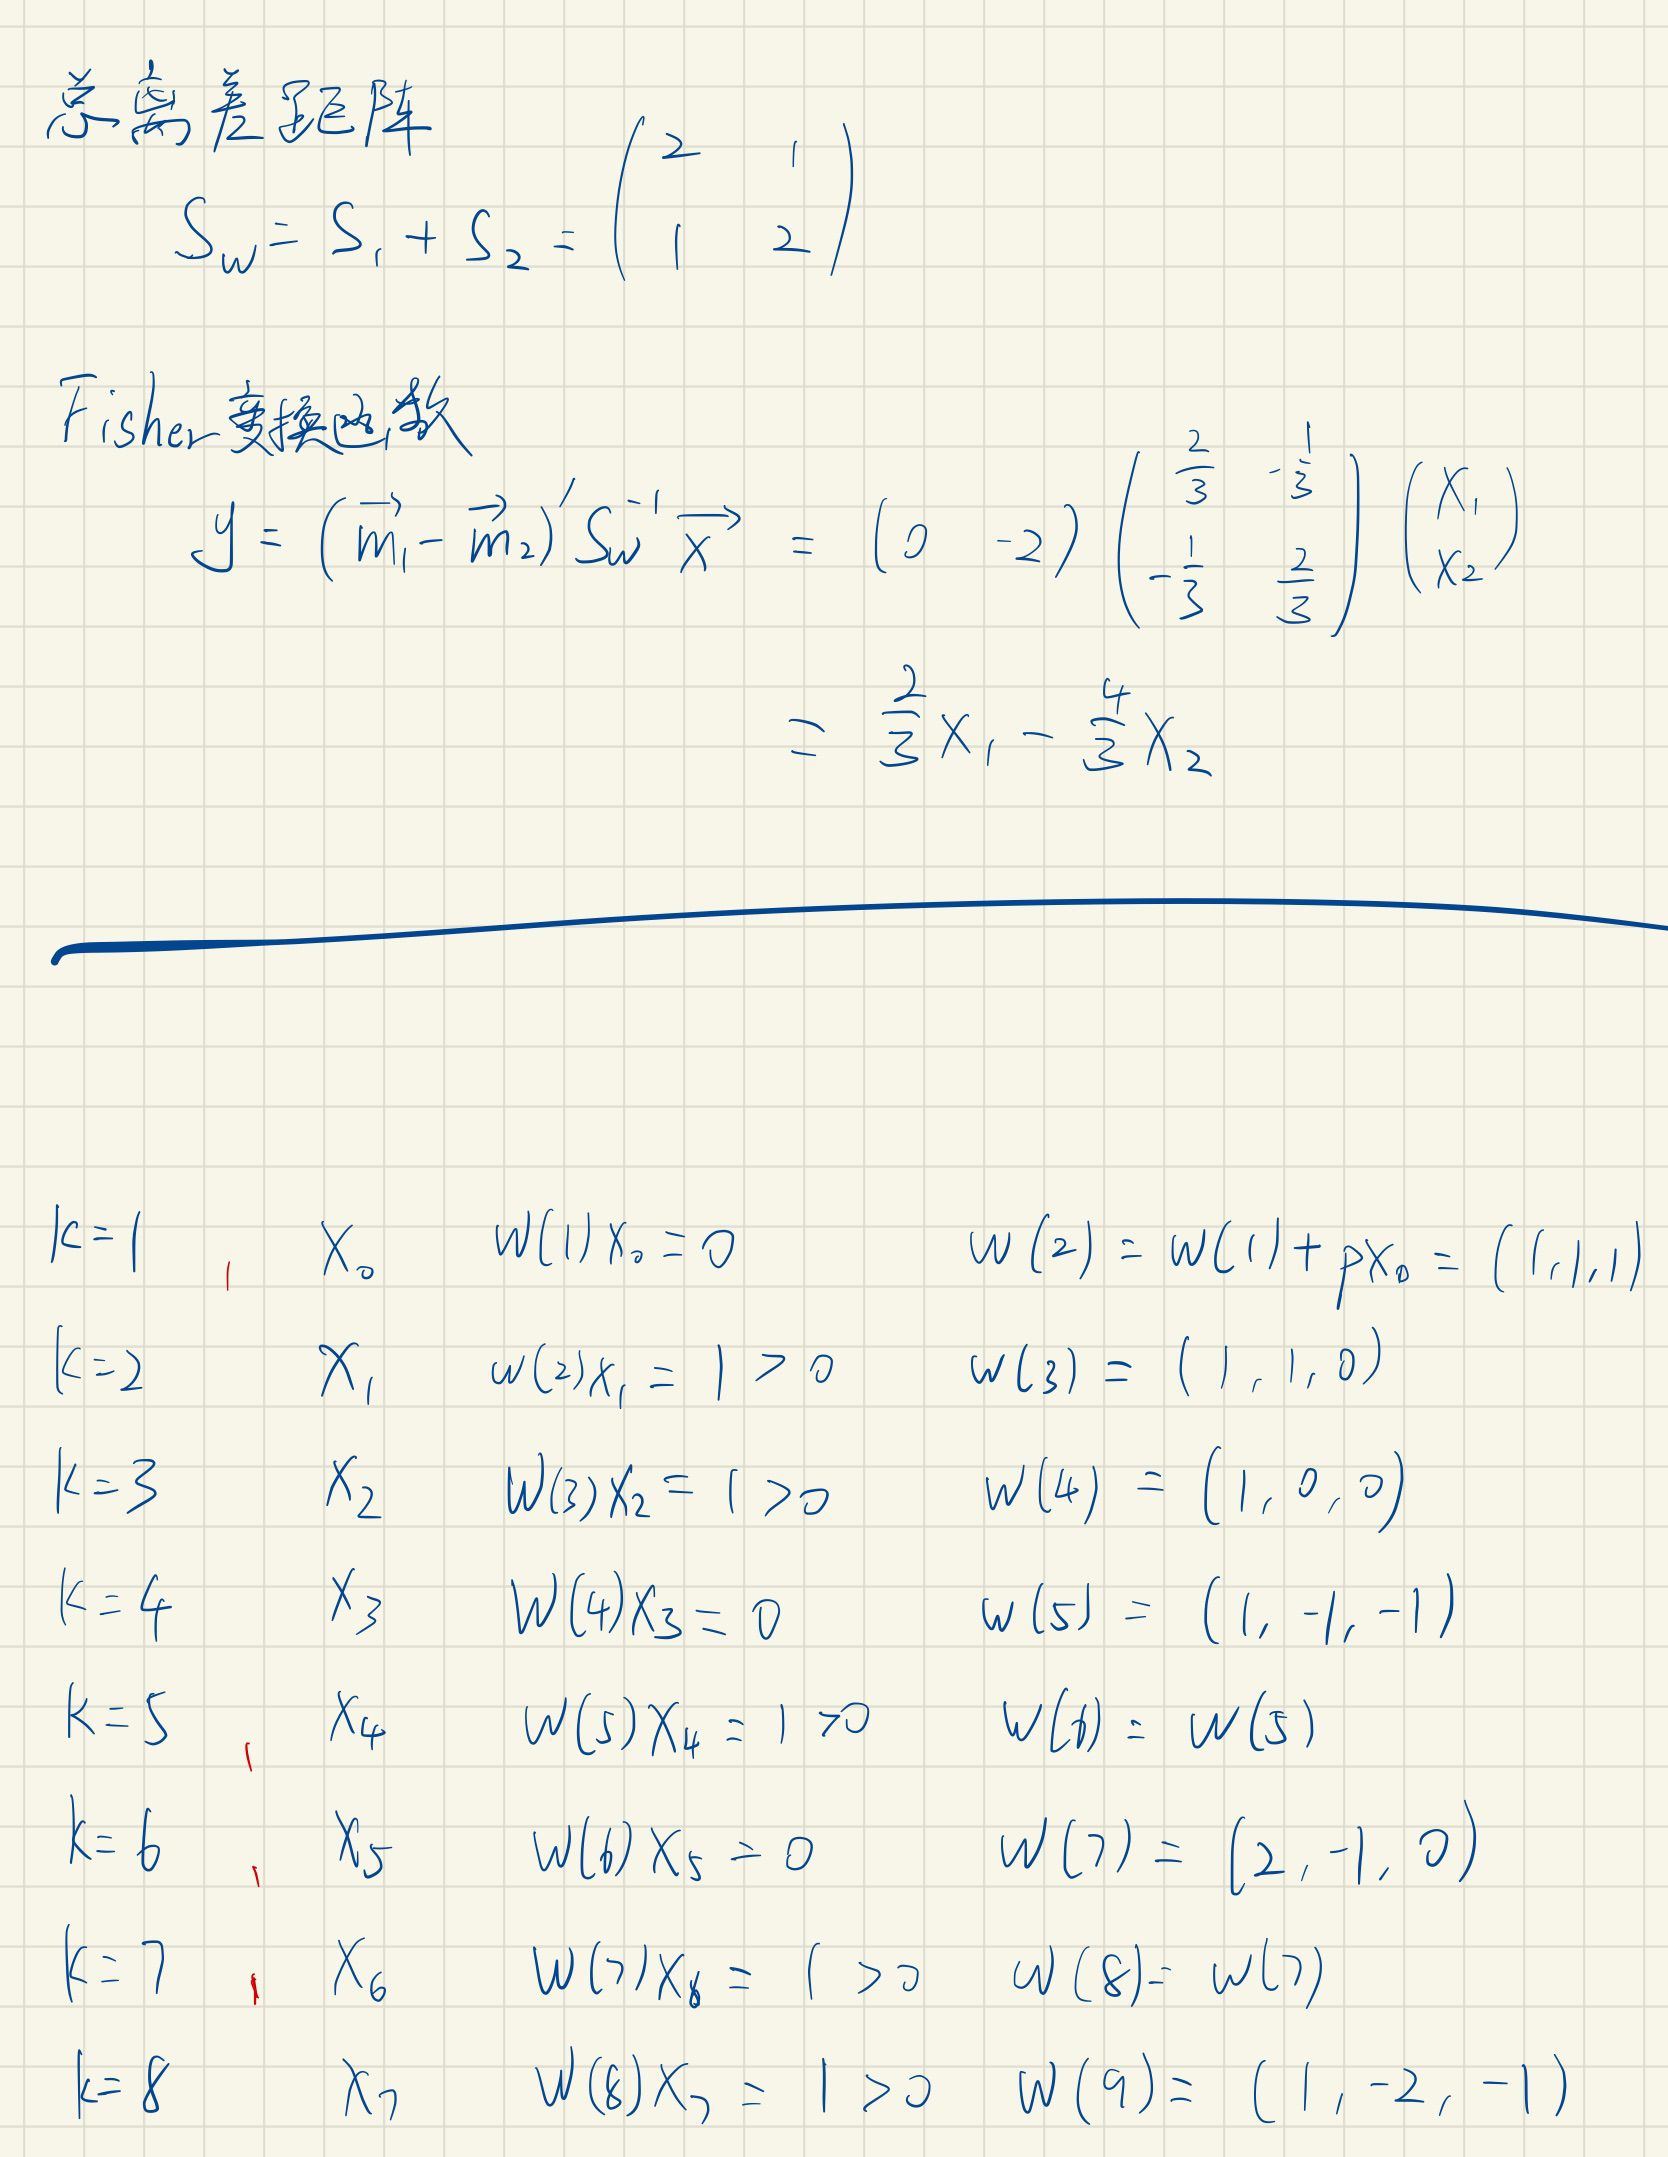 总离差距阵
S_w = S₁ + S₂ = (2 1; 1 2)
Fisher变换函数
y = (m⃗₁ - m⃗₂)′ S_w⁻¹ x⃗ = (0 -2) (2/3 -1/3; -1/3 2/3) (x₁; x₂)
= 2/3 x₁ - 4/3 x₂
k=1 , x₀ w(1)x₀ = 0 w(2) = w(1) + px₀ = (1,1,1)
k=2 x₁ w(2)x₁ = 1 > 0 w(3) = (1,1,0)
k=3 x₂ w(3)x₂ = 1 > 0 w(4) = (1,0,0)
k=4 x₃ w(4)x₃ = 0 w(5) = (1,-1,-1)
k=5 , x₄ w(5)x₄ = 1 > 0 w(6) = w(5)
k=6 , x₅ w(6)x₅ = 0 w(7) = (2,-1,0)
k=7 , x₆ w(7)x₆ = 1 > 0 w(8) = w(7)
k=8 x₇ w(8)x₇ = 1 > 0 w(9) = (1,-2,-1)